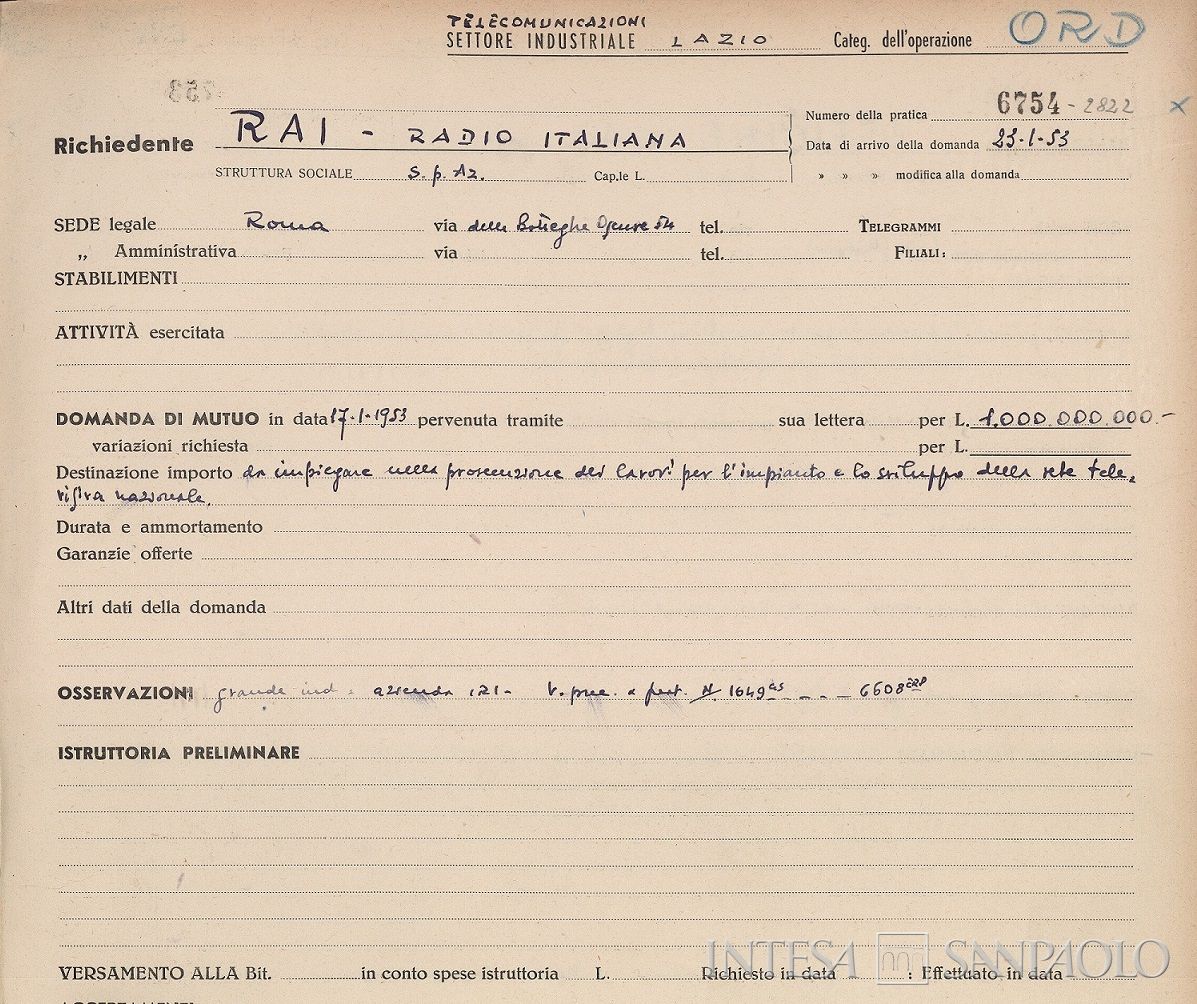 TELECOMUNICAZIONI
SETTORE INDUSTRIALE LAZIO Categ. dell'operazione ORD
753
6754 - 2822 x
Numero della pratica
Richiedente RAI - RADIO ITALIANA
Data di arrivo della domanda 23·1·53
STRUTTURA SOCIALE S.p.Az. Cap.le L.
» » » modifica alla domanda
SEDE legale Roma via delle Botteghe Oscure 54 tel. TELEGRAMMI
„ Amministrativa via tel. FILIALI:
STABILIMENTI
ATTIVITÀ esercitata
DOMANDA DI MUTUO in data 17·1·1953 pervenuta tramite sua lettera per L. 1.000.000.000.-
variazioni richiesta per L.
Destinazione importo da impiegare nella prosecuzione dei lavori per l'impianto e lo sviluppo della rete tele-
visiva nazionale.
Durata e ammortamento
Garanzie offerte
Altri dati della domanda
OSSERVAZIONI grande ind. azienda IRI - V. prec. N. 1649 6608
ISTRUTTORIA PRELIMINARE
VERSAMENTO ALLA Bit. in conto spese istruttoria L. Richiesto in data : Effettuato in data
INTESA SANPAOLO